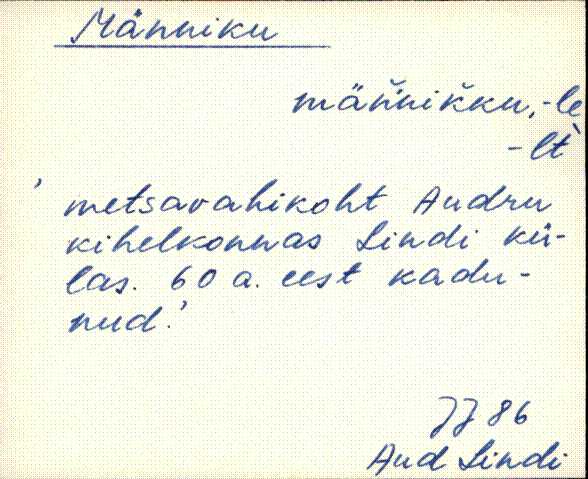 Männiku
mäňnikˇku, -le
-lt`
' metsavahikoht Audru
kihelkonnas Lindi kü-
las. 60 a. eest kadu-
nud.'
JJ 86
Aud Lindi